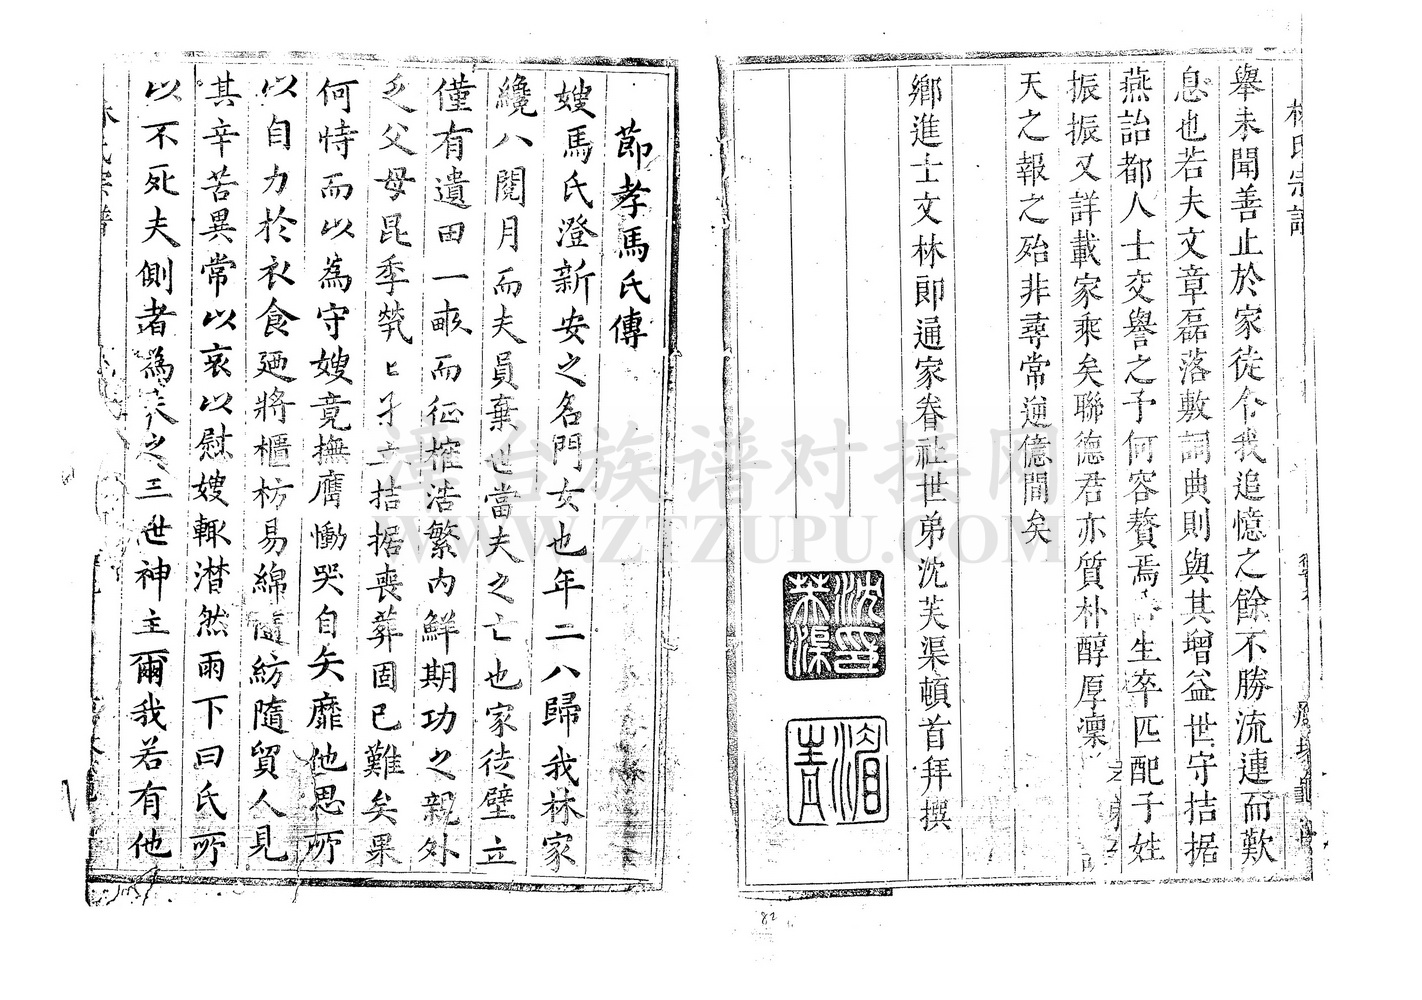 林氏宗譜
舉未聞善止於家徒令我追憶之餘不勝流連而歎
息也若夫文章磊落敷詞典則與其增益世守拮据
燕詒都人士交譽之予何容贅焉 生卒匹配子姓
振振又詳載家乘矣聯德君亦質朴醇厚凜
天之報之殆非尋常逆億間矣
鄉進士文林郎通家眷社世弟沈芙渠頓首拜撰
沈印芙渠
節孝馬氏傳
嫂馬氏澄新安之名門女也年二八歸我林家
纔八閱月而夫員棄世當夫之亡也家徒壁立
僅有遺田一畝而征榷浩繁內鮮期功之親外
乏父母昆季煢匕孑立拮据喪葬固已難矣果
何恃而以為守嫂竟撫膺慟哭自矢靡他思所
以自力於衣食廼將櫃枋易綿隨紡隨貿人見
其辛苦異常以哀以慰嫂輒潸然雨下曰氏所
以不死夫側者為 之三世神主爾我若有他
林氏宗譜
澶台族谱对接网
WWW.ZTZUPU.COM
82